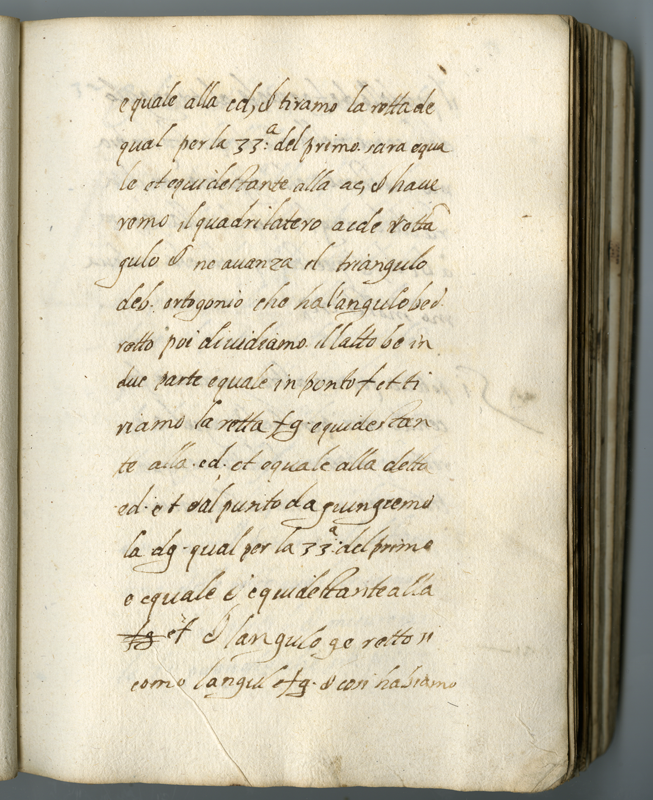 equale alla cd, & tiramo la retta de
qual per la 33.ª del primo sara equa
le et equidestante alla ac, & have
remo il quadrilatero acde retta
gulo & ne avanza el triangulo
deb. ortogonio che ha l'angulo bed.
retto poi dividiamo il latto be in
due parte equale in ponto f et ti
riamo la retta fg. equidestan
te alla .ed. et equale alla detta
.ed. et dal punto d agiungremo
la dg. qual per la 33.ª del primo
e equale & equidestante alla
fg ef & langulo ge retto si
como langul efg. & cosi habiamo